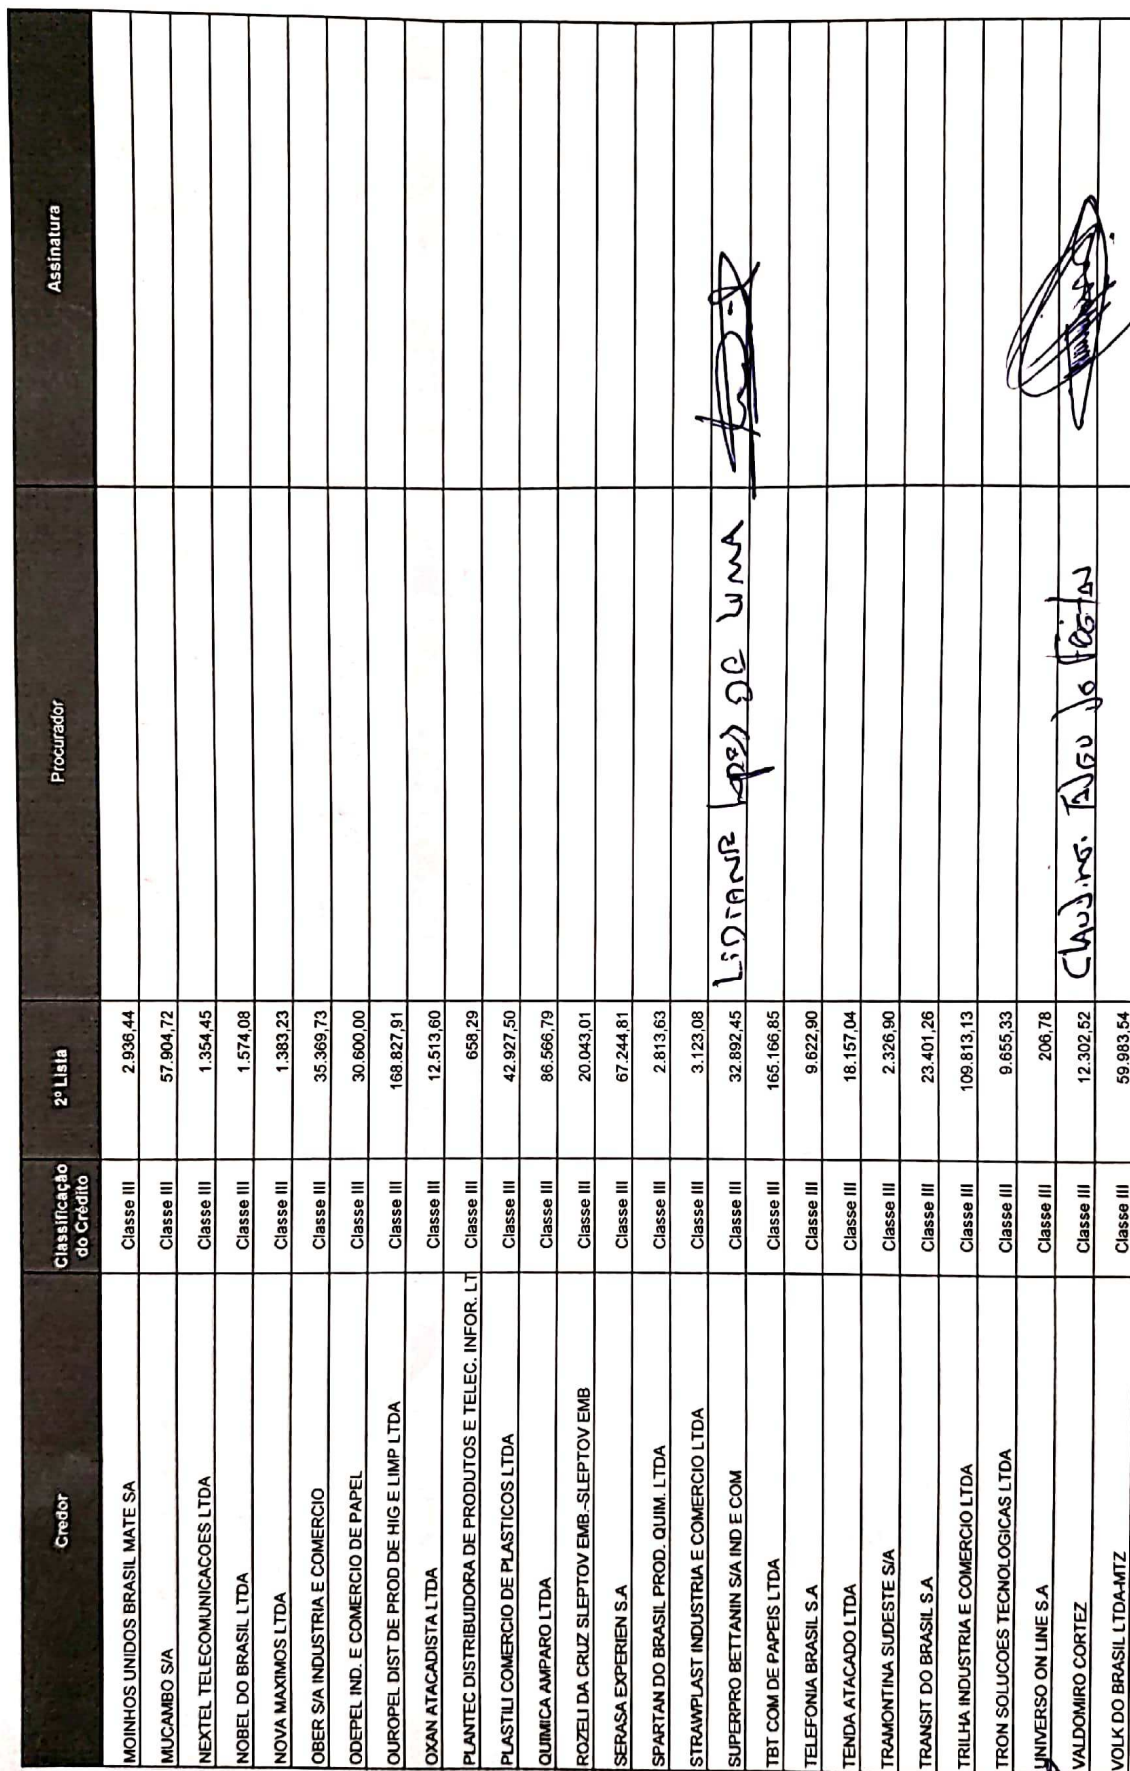 Credor Classificação do Crédito 2º Lista Procurador Assinatura
MOINHOS UNIDOS BRASIL MATE SA Classe III 2.936,44
MUCAMBO S/A Classe III 57.904,72
NEXTEL TELECOMUNICACOES LTDA Classe III 1.354,45
NOBEL DO BRASIL LTDA Classe III 1.574,08
NOVA MAXIMOS LTDA Classe III 1.383,23
OBER S/A INDUSTRIA E COMERCIO Classe III 35.369,73
ODEPEL IND. E COMERCIO DE PAPEL Classe III 30.600,00
OUROPEL DIST DE PROD DE HIG E LIMP LTDA Classe III 168.827,91
OXAN ATACADISTA LTDA Classe III 12.513,60
PLANTEC DISTRIBUIDORA DE PRODUTOS E TELEC. INFOR. LT Classe III 658,29
PLASTILI COMERCIO DE PLASTICOS LTDA Classe III 42.927,50
QUIMICA AMPARO LTDA Classe III 86.566,79
ROZELI DA CRUZ SLEPTOV EMB.-SLEPTOV EMB Classe III 20.043,01
SERASA EXPERIEN S.A Classe III 67.244,81
SPARTAN DO BRASIL PROD. QUIM. LTDA Classe III 2.813,63
STRAWPLAST INDUSTRIA E COMERCIO LTDA Classe III 3.123,08
SUPERPRO BETTANIN S/A IND E COM Classe III 32.892,45 LiDIANE lopes DE LIMA
TBT COM DE PAPEIS LTDA Classe III 165.166,85
TELEFONIA BRASIL S.A Classe III 9.622,90
TENDA ATACADO LTDA Classe III 18.157,04
TRAMONTINA SUDESTE S/A Classe III 2.326,90
TRANSIT DO BRASIL S.A Classe III 23.401,26
TRILHA INDUSTRIA E COMERCIO LTDA Classe III 109.813,13
TRON SOLUCOES TECNOLOGICAS LTDA Classe III 9.655,33
UNIVERSO ON LINE S.A Classe III 206,78
VALDOMIRO CORTEZ Classe III 12.302,52
VOLK DO BRASIL LTDA-MTZ Classe III 59.983,54